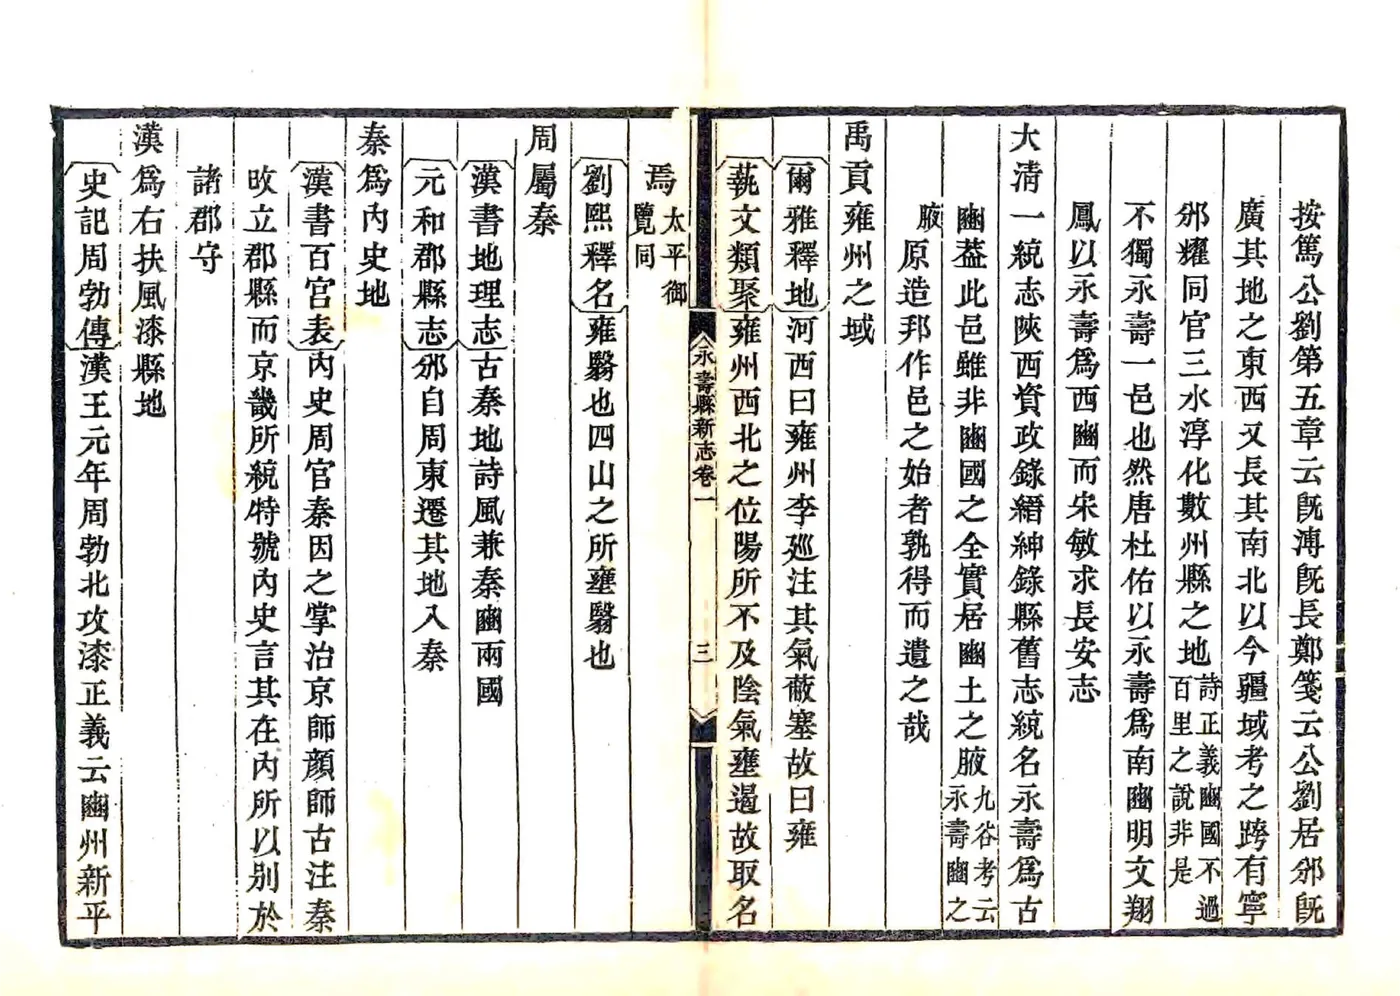 按篤公劉第五章云旣溥旣長鄭箋云公劉居邠旣
廣其地之東西又長其南北以今疆域考之跨有寧
邠耀同官三水淳化數州縣之地詩正義豳國不過百里之說非是
不獨永壽一邑也然唐杜佑以永壽爲南豳明文翔
鳳以永壽爲西豳而宋敏求長安志
大清一統志陝西資政錄縉紳錄縣舊志統名永壽爲古
豳葢此邑雖非豳國之全實居豳土之腋九谷考云永壽豳之
腋原造邦作邑之始者孰得而遺之哉
禹貢雍州之域
爾雅釋地河西曰雍州李廵注其氣蔽塞故曰雍
蓺文類聚雍州西北之位陽所不及陰氣壅遏故取名
永壽縣新志卷一
三
焉太平御覽同
劉熙釋名雍翳也四山之所壅翳也
周屬秦
漢書地理志古秦地詩風兼秦豳兩國
元和郡縣志邠自周東遷其地入秦
秦爲內史地
漢書百官表內史周官秦因之掌治京師顏師古注秦
攺立郡縣而京畿所統特號內史言其在內所以别於
諸郡守
漢爲右扶風漆縣地
史記周勃傳漢王元年周勃北攻漆正義云豳州新平